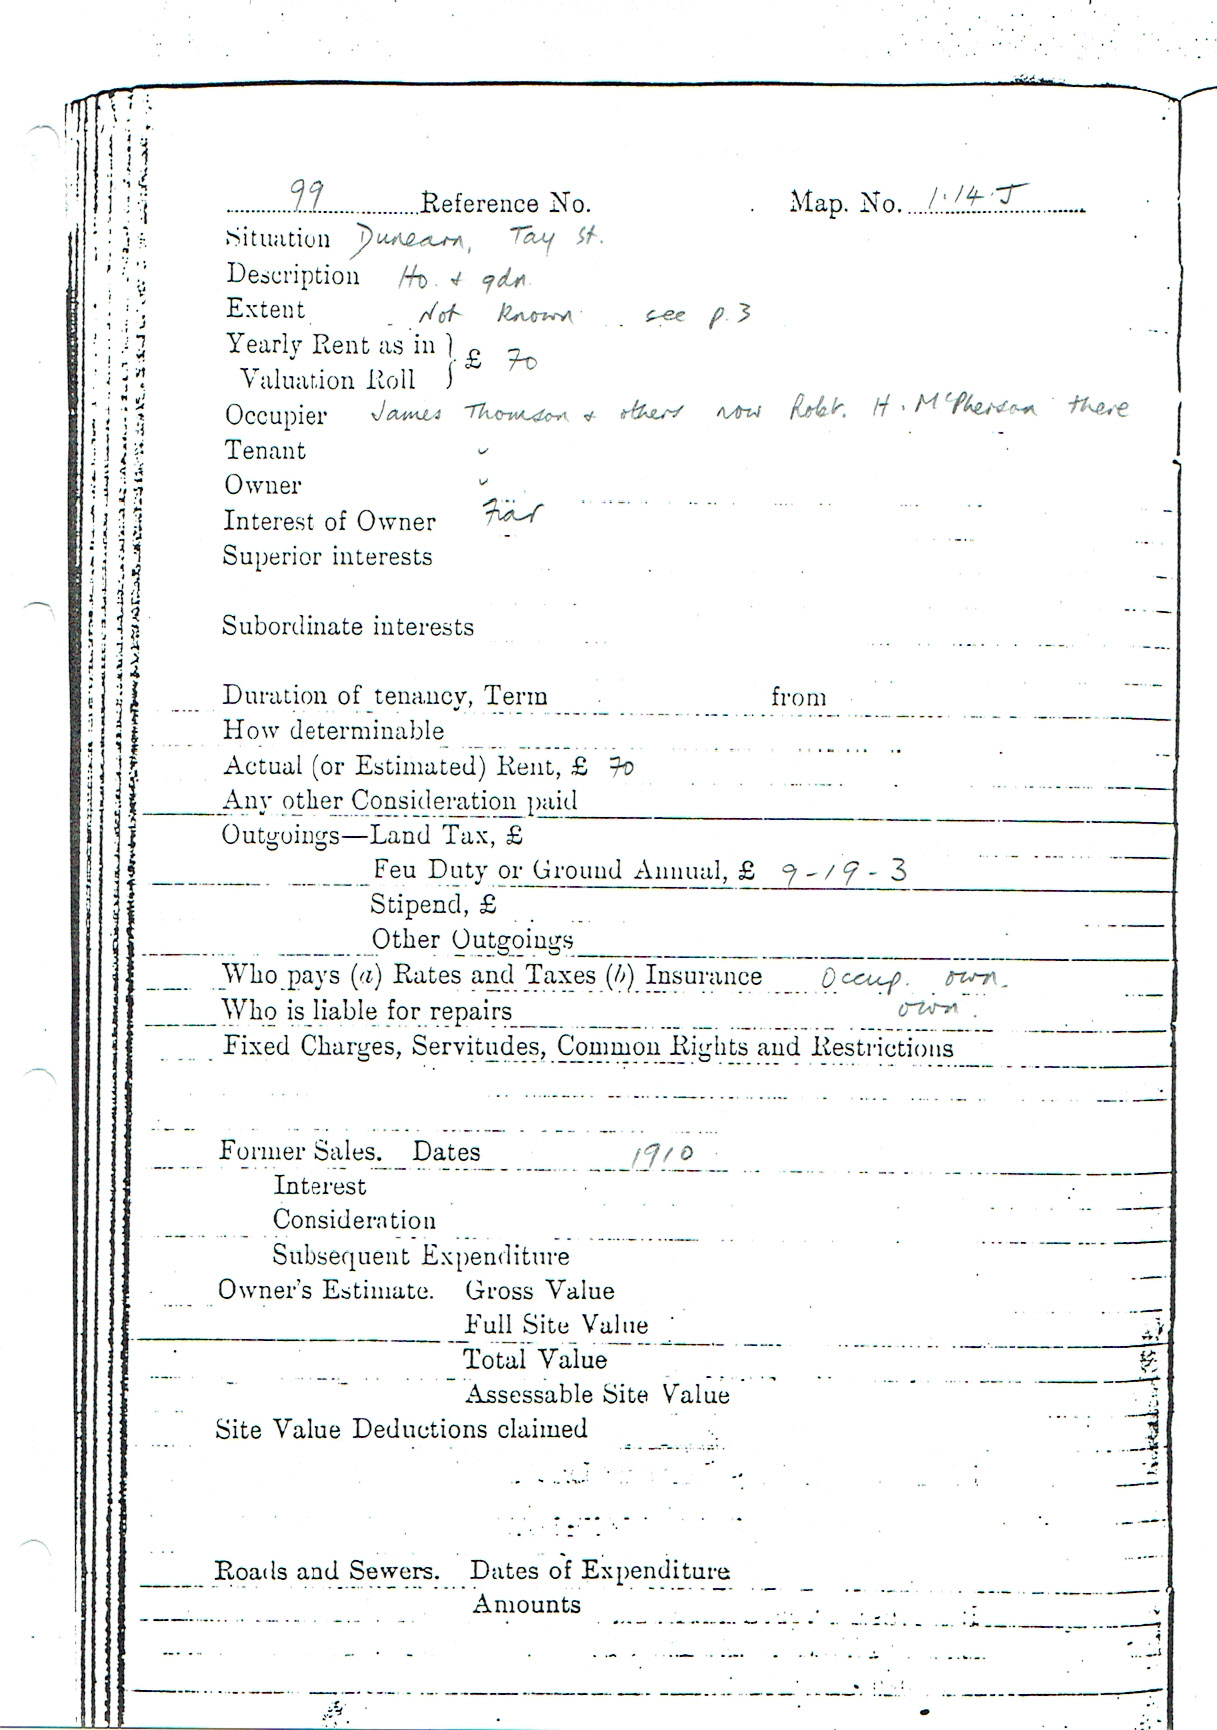 99 Reference No. Map. No. 1.14.J
Situation Dunearn, Tay St.
Description Ho. & gdn.
Extent Not known see p. 3
Yearly Rent as in
Valuation Roll } £ 70
Occupier James Thomson & others now Robt. H. McPherson there
Tenant "
Owner "
Interest of Owner Fiar
Superior interests
Subordinate interests
Duration of tenancy, Term from
How determinable
Actual (or Estimated) Rent, £ 70
Any other Consideration paid
Outgoings—Land Tax, £
Feu Duty or Ground Annual, £ 9-19-3
Stipend, £
Other Outgoings
Who pays (a) Rates and Taxes (b) Insurance Occup. own.
Who is liable for repairs own.
Fixed Charges, Servitudes, Common Rights and Restrictions
Former Sales. Dates 1910
Interest
Consideration
Subsequent Expenditure
Owner's Estimate. Gross Value
Full Site Value
Total Value
Assessable Site Value
Site Value Deductions claimed
Roads and Sewers. Dates of Expenditure
Amounts